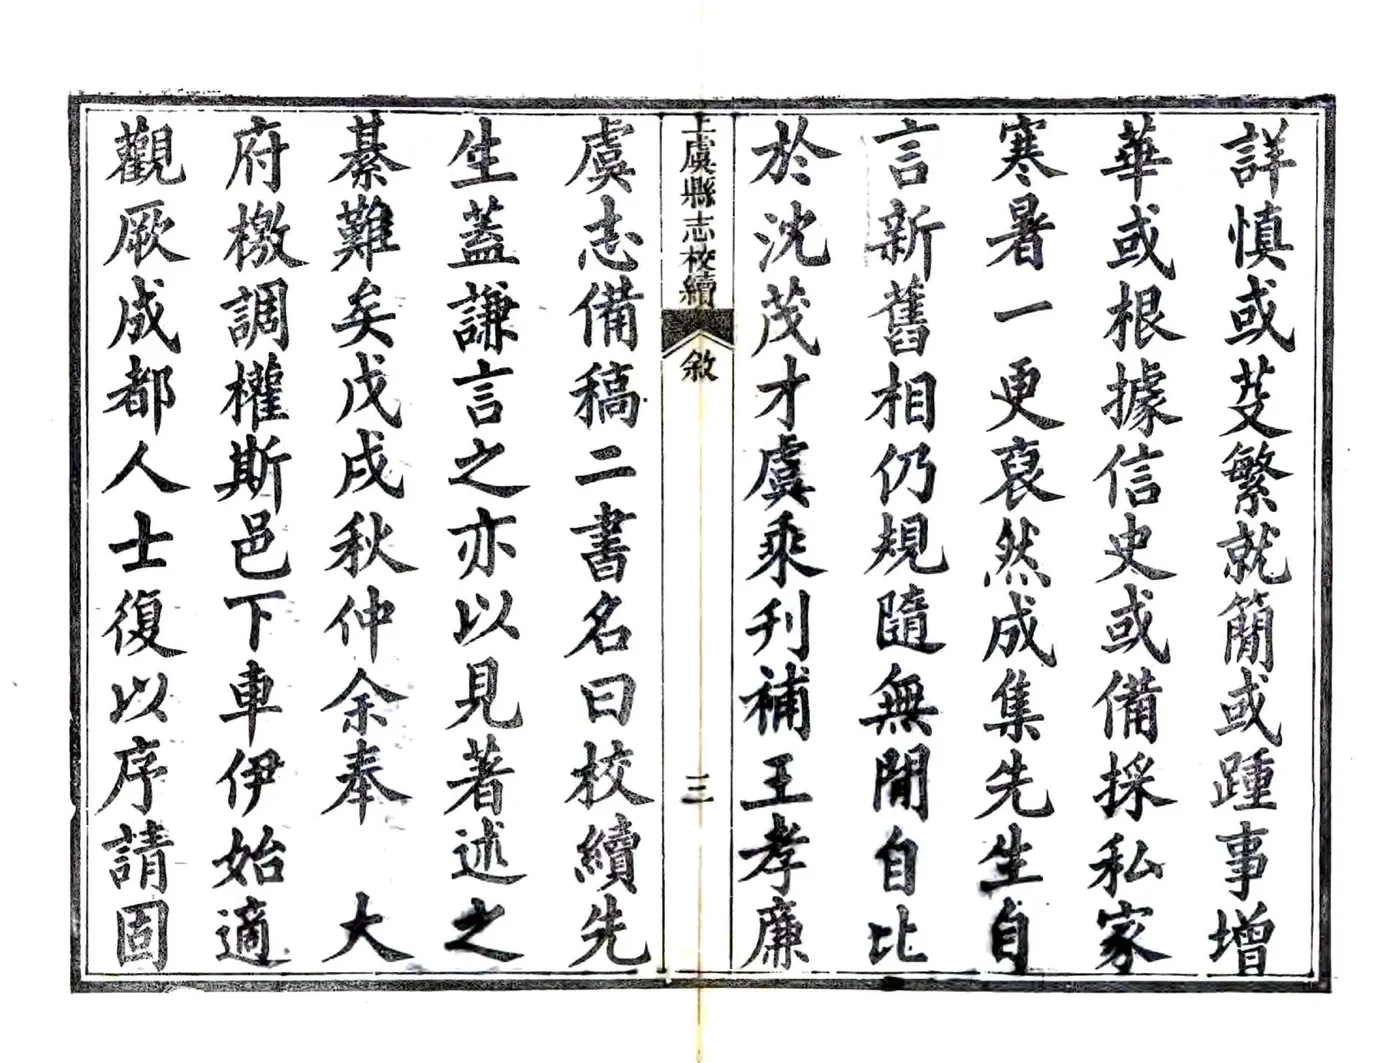 詳慎或芟繁就簡或踵事增
華或根據信史或備採私家
寒暑一更裒然成集先生自
言新舊相仍規隨無閒自比
於沈茂才虞乘刋補王孝廉
上虞縣志校續
敘
三
虞志備稿二書名曰校續先
生蓋謙言之亦以見著述之
綦難矣戊戌秋仲余奉 大
府檄調權斯邑下車伊始適
觀厥成都人士復以序請固